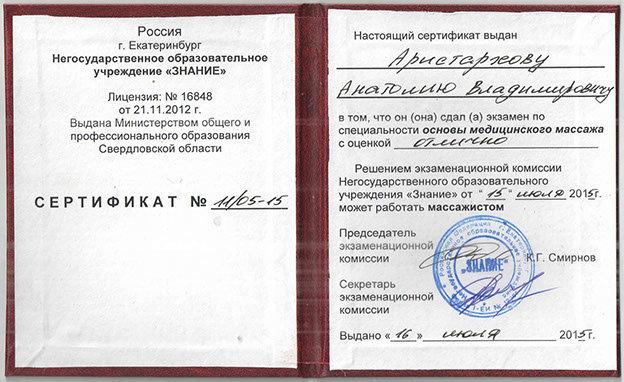 Россия
г. Екатеринбург
Негосударственное образовательное
учреждение «ЗНАНИЕ»
Лицензия: № 16848
от 21.11.2012 г.
Выдана Министерством общего и
профессионального образования
Свердловской области
СЕРТИФИКАТ № 11/05-15
Настоящий сертификат выдан
Аристархову
Анатолию Владимировичу
в том, что он (она) сдал (а) экзамен по
специальности основы медицинского массажа
с оценкой отлично
Решением экзаменационной комиссии
Негосударственного образовательного
учреждения «Знание» от "15" июля 2015г.
может работать массажистом
Председатель
экзаменационной
комиссии К.Г. Смирнов
Секретарь
экзаменационной
комиссии
„ЗНАНИЕ"
Выдано «16» июля 2015г